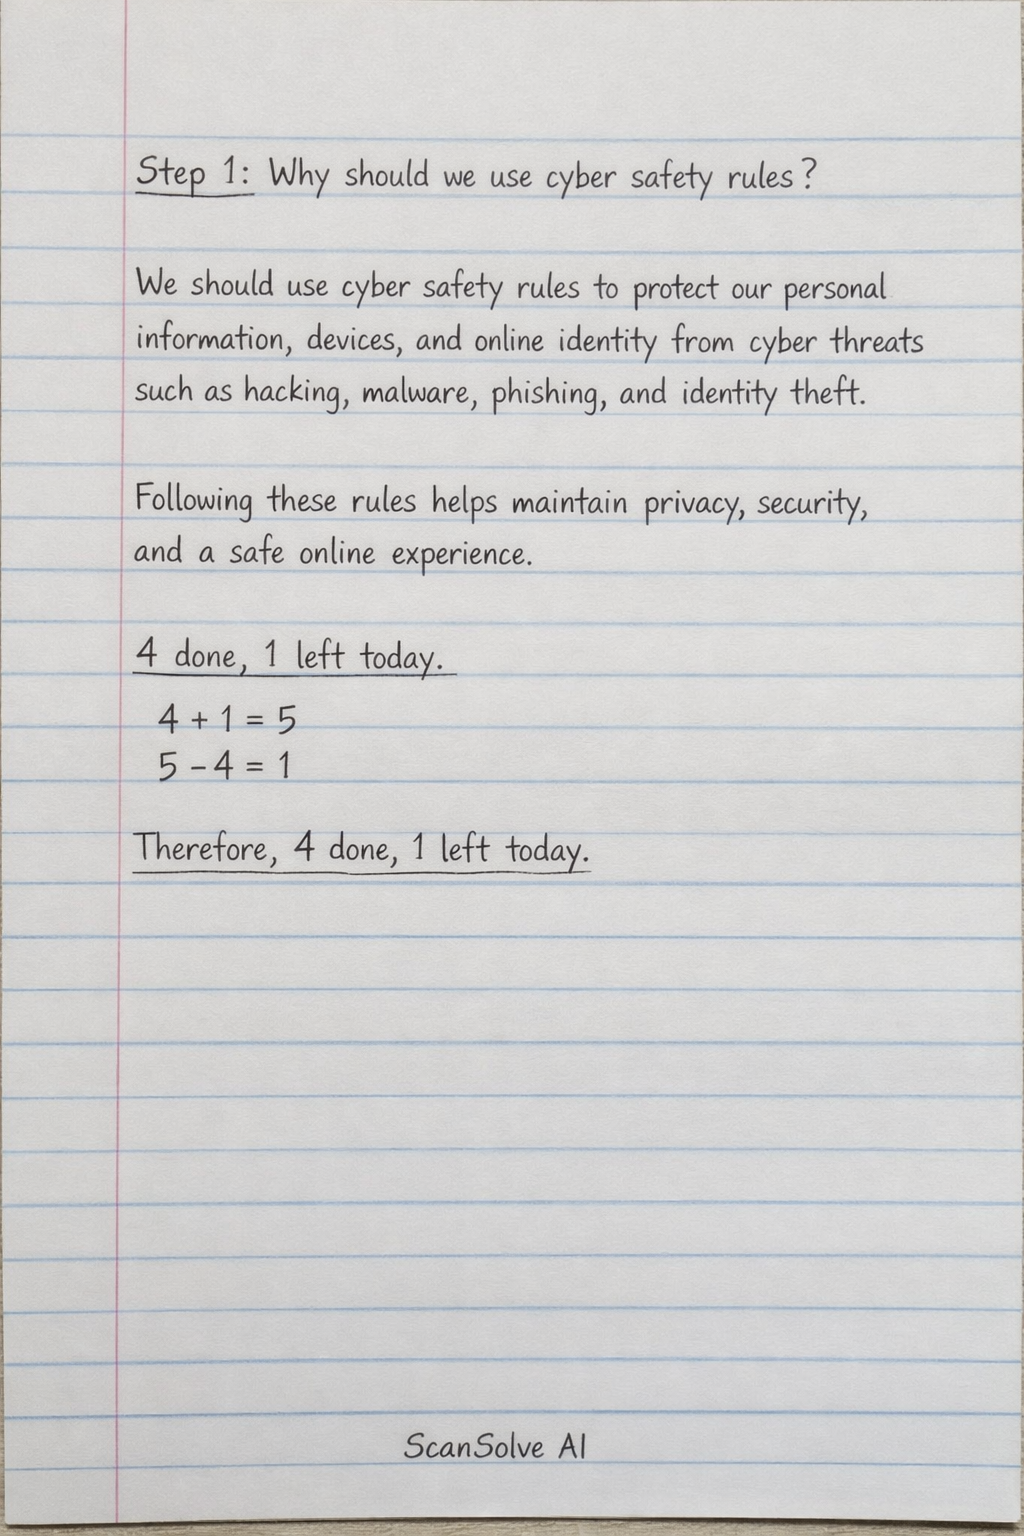 Step 1: Why should we use cyber safety rules?
We should use cyber safety rules to protect our personal
information, devices, and online identity from cyber threats
such as hacking, malware, phishing, and identity theft.
Following these rules helps maintain privacy, security,
and a safe online experience.
4 done, 1 left today.
4 + 1 = 5
5 - 4 = 1
Therefore, 4 done, 1 left today.
ScanSolve AI